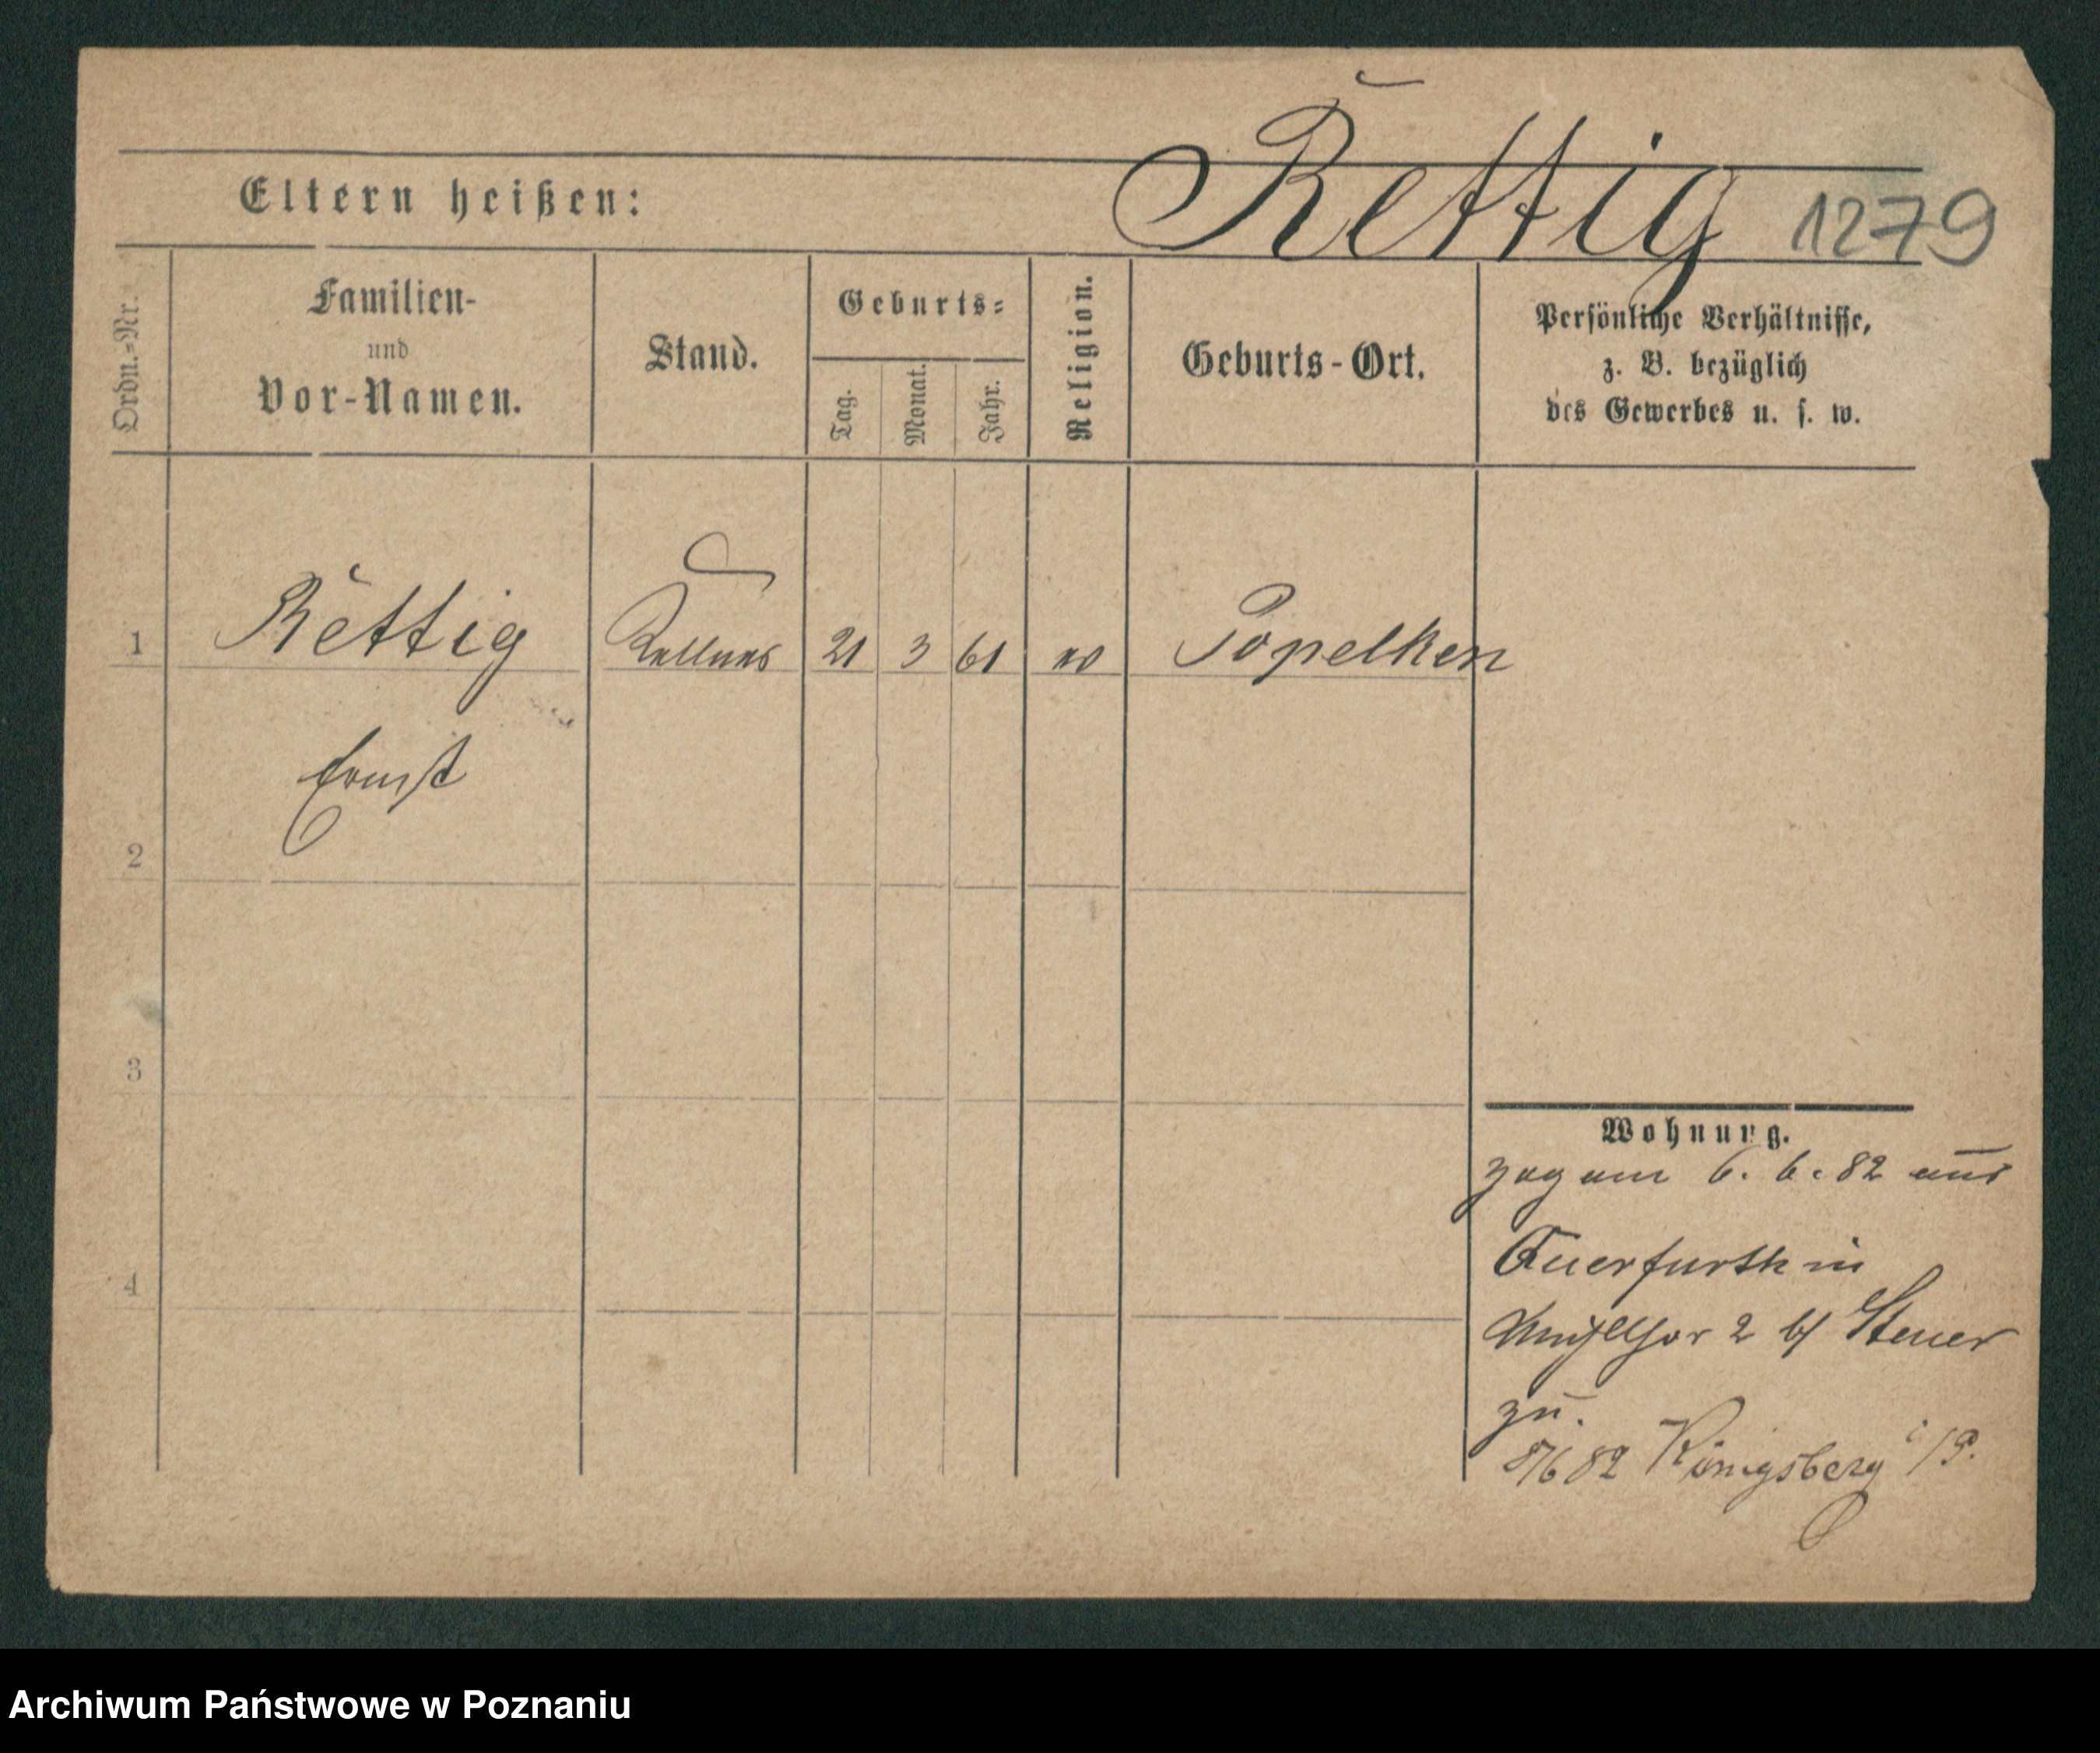 Rettig 1279
Eltern heißen:
Ordn.-Nr.
Familien-
und
Vor-Namen.
Stand.
Geburts-
Tag.
Monat.
Jahr.
Religion.
Geburts-Ort.
Persönliche Verhältnisse,
z. B. bezüglich
des Gewerbes u. s. w.
1 Rettig Kellner 21 3 61 Popelken
Ernst
2
3
4
Wohnung.
zog am 6. 6. 82 aus
Querfurth in
2 b/ Steuer
zu.
8/6 82 Königsberg i/P.
Archiwum Państwowe w Poznaniu